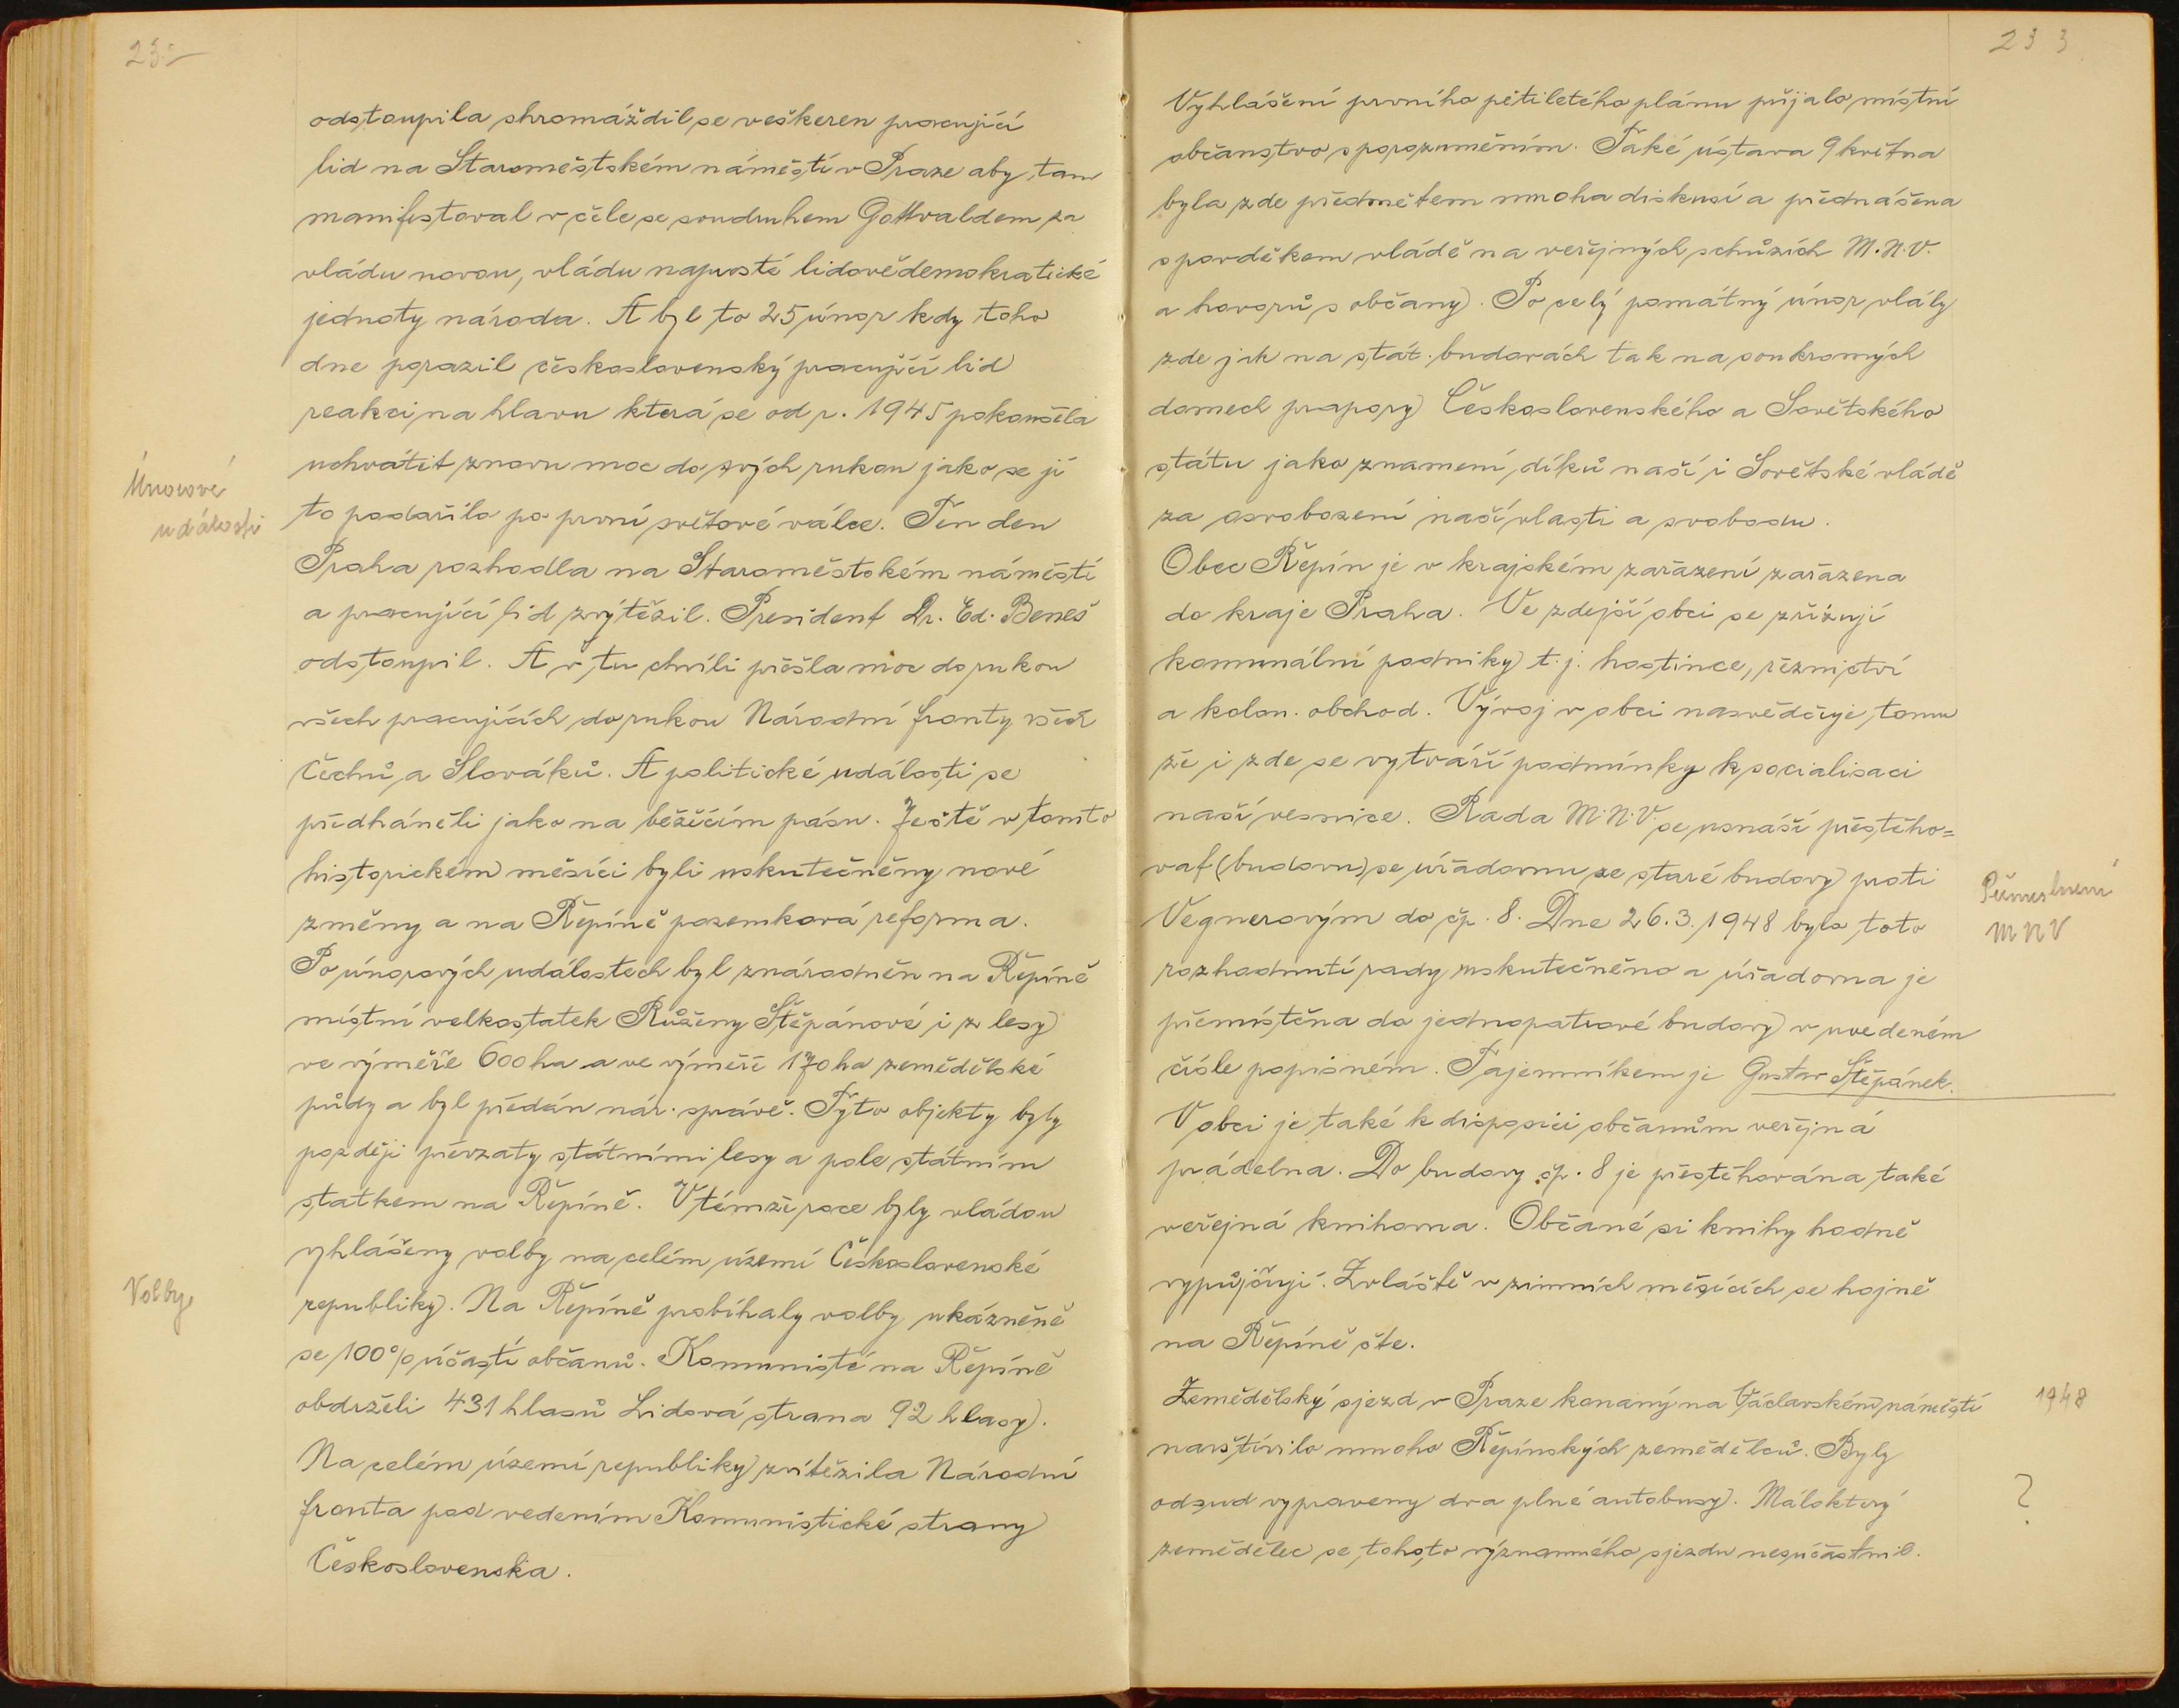 232
odstoupila shromáždil se veškeren pracující
lid na Staroměstském náměstí v Praze aby tam
manifestoval v čele se soudruhem Gottwaldem za
vládu novou, vládu naprosté lidovědemokratické
jednoty národa. A byl to 25 únor kdy toho
dne porazil československý pracující lid
reakci na hlavu která se od r. 1945 pokoušela
uchvátit znovu moc do svých rukou jako se jí
Únorové
události
to podařilo po první světové válce. Ten den
Praha rozhodla na Staroměstském náměstí
a pracující lid zvýtězil. President Dr. Ed. Beneš
odstoupil. A v tu chvíli přešla moc do rukou
všech pracujících do rukou Národní fronty všech
Čechů a Slováků. A politické události se
předháněli jako na běžícím pásu. Ještě v tomto
historickém měsíci byli uskutečněny nové
změny a na Řepíně pozemková reforma.
Po únorových událostech byl znárodněn na Řepíně
místní velkostatek Růženy Štěpánové i z lesy
ve výměře 600 ha a ve výměře 170 ha zemědělské
půdy a byl předán nár. správě. Tyto objekty byly
později převzaty státními lesy a pole státním
statkem na Řepíně. V témže roce byly vládou
vyhlášeny volby na celém území Československé
Volby
republiky. Na Řepíně probíhaly volby ukázněně
se 100% účastí občanů. Komunisté na Řepíně
obdrželi 431 hlasů Lidová strana 92 hlasy.
Na celém území republiky zvítězila Národní
fronta pod vedením Komunistické strany
Československa.
233
Vyhlášení prvního pětiletého plánu přijalo místní
občanstvo s porozuměním. Také ústava 9 května
byla zde předmětem mnoha diskusí a přednášena
s povděkem vládě na veřejných schůzích M.N.V.
a hovorů s občany. Po celý památný únor vlály
zde jak na stát. budovách tak na soukromých
domech prapory Československého a Sovětského
státu jako znamení díků naší i Sovětské vládě
za osvobození naší vlasti a svobodu.
Obec Řepín je v krajském zařazení zařazena
do kraje Praha. Ve zdejší obci se zřizují
komunální podniky t.j. hostince, řeznictví
a kolon. obchod. Vývoj v obci nasvědčuje tomu
že i zde se vytváří podmínky k socialisaci
naší vesnice. Rada M.N.V. se usnáší přestěho=
vat (budovu) se úřadovnu ze staré budovy proti
Vegnerovým do čp. 8. Dne 26.3.1948 bylo toto
MNV
rozhodnutí rady uskutečněno a úřadovna je
přemístěna do jednopatrové budovy v uvedeném
čísle popisném. Tajemníkem je Gustav Štěpánek.
V obci je také k disposici občanům veřejná
prádelna. Do budovy čp. 8 je přestěhována také
veřejná knihovna. Občané si knihy hodně
vypůjčují. Zvláště v zimních měsících se hojně
na Řepíně čte.
Zemědělský sjezd v Praze konaný na Václavském náměstí
1948
navštívilo mnoho Řepínských zemědělců. Byly
odsud vypraveny dva plné autobusy. Málokterý
?
zemědělec se tohoto významného sjezdu nezúčastnil.